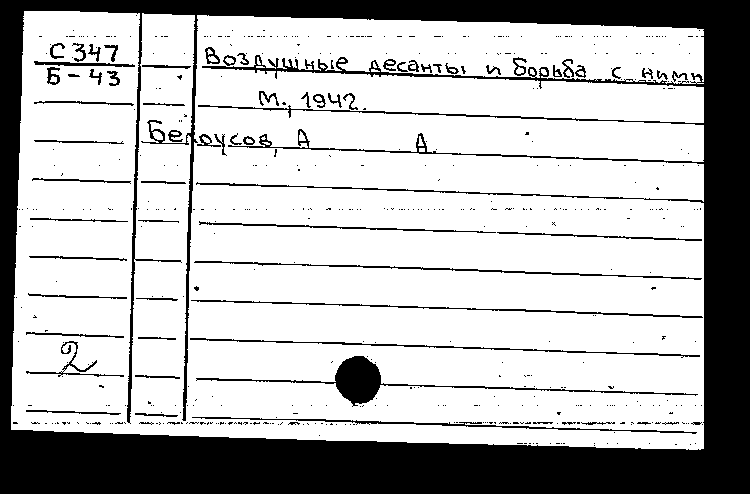 С 347
Б-43
Воздушные десанты и борьба с ними
М., 1942.
Белоусов, А А.
2